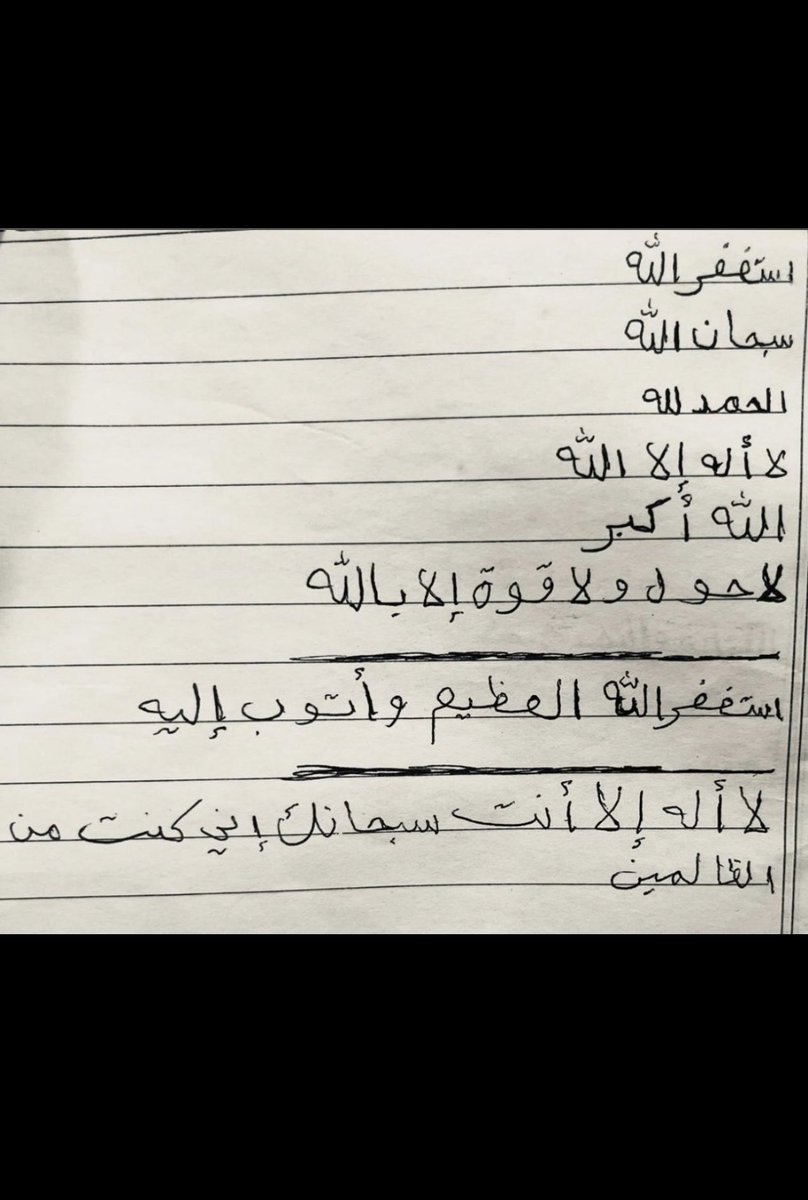 استغفر الله
سبحان الله
الحمد لله
لا أله إلا الله
الله أكبر
لا حول ولا قوة إلا بالله
استغفر الله العظيم وأتوب إليه
لا أله إلا أنت سبحانك إني كنت من
الظالمين